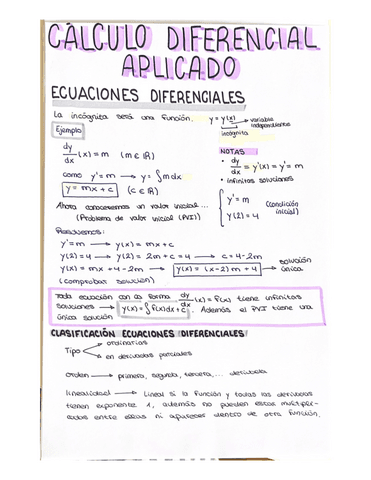 CÁLCULO DIFERENCIAL
APLICADO
ECUACIONES DIFERENCIALES
La incógnita será una función. y = y(x) → variable independiente
incógnita
Ejemplo
dy/dx (x) = m (m ∈ ℝ)
como y' = m → y = ∫ m dx
y = mx + c (c ∈ ℝ)
NOTAS
• dy/dx = y'(x) = y' = m
• infinitas soluciones
Ahora conoceremos un valor inicial...
(Problema de valor inicial (PVI))
{ y' = m
y(2) = 4 (condición inicial)
Resolvemos:
y' = m → y(x) = mx + c
y(2) = 4 → y(2) = 2m + c = 4 → c = 4 - 2m
y(x) = mx + 4 - 2m → y(x) = (x-2)m + 4 → solución única
(comprobar solución)
Toda ecuación con la forma dy/dx (x) = f(x) tiene infinitas
soluciones → y(x) = ∫ f(x)dx + c. Además el PVI tiene una
única solución
CLASIFICACIÓN ECUACIONES DIFERENCIALES
Tipo → ordinarias
→ en derivadas parciales
Orden → primera, segunda, tercera, ... derivada
linealidad → lineal si la función y todas las derivadas
tienen exponente 1, además no pueden estar multipli-
cadas entre ellas ni aparecer dentro de otra función.